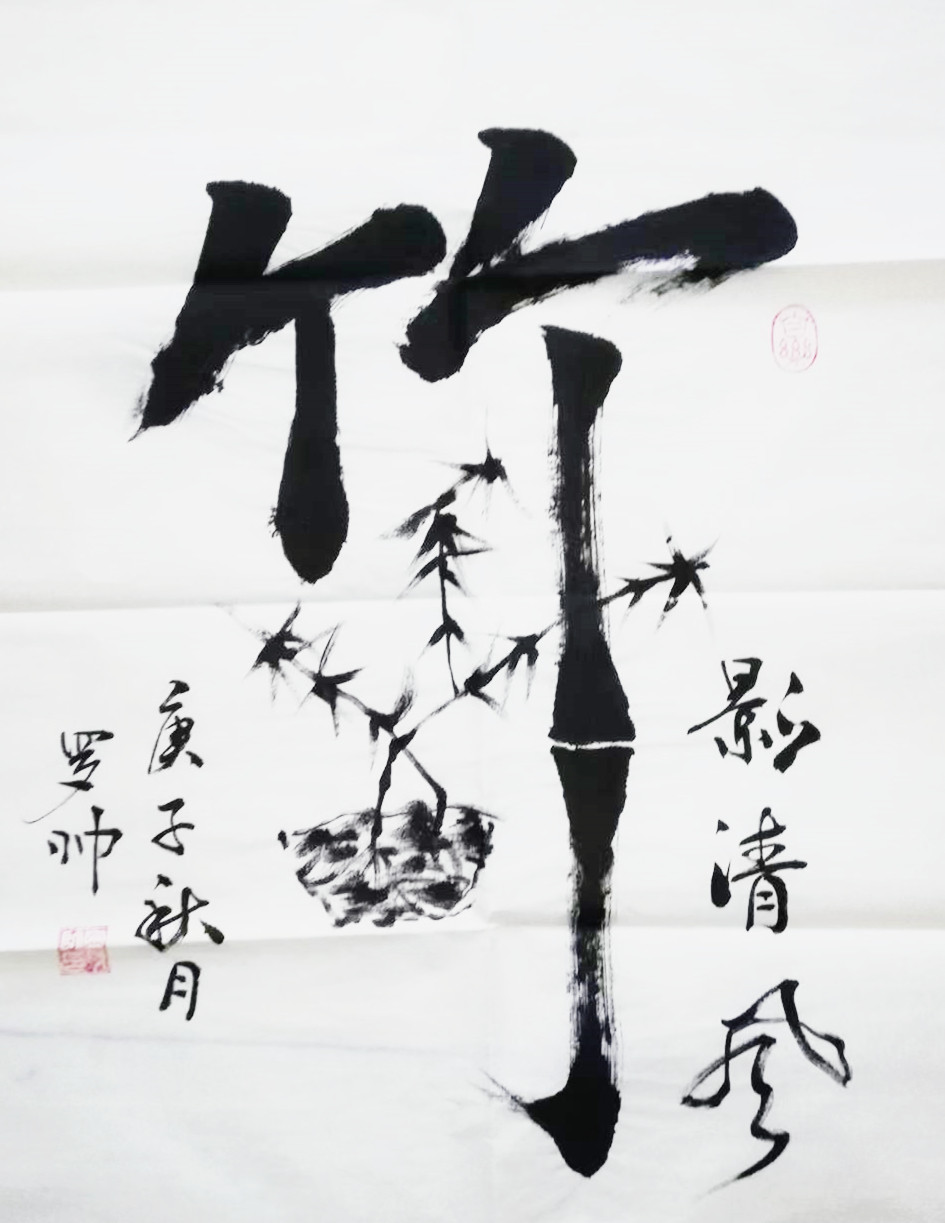 竹
影清风
庚子秋月
罗帅